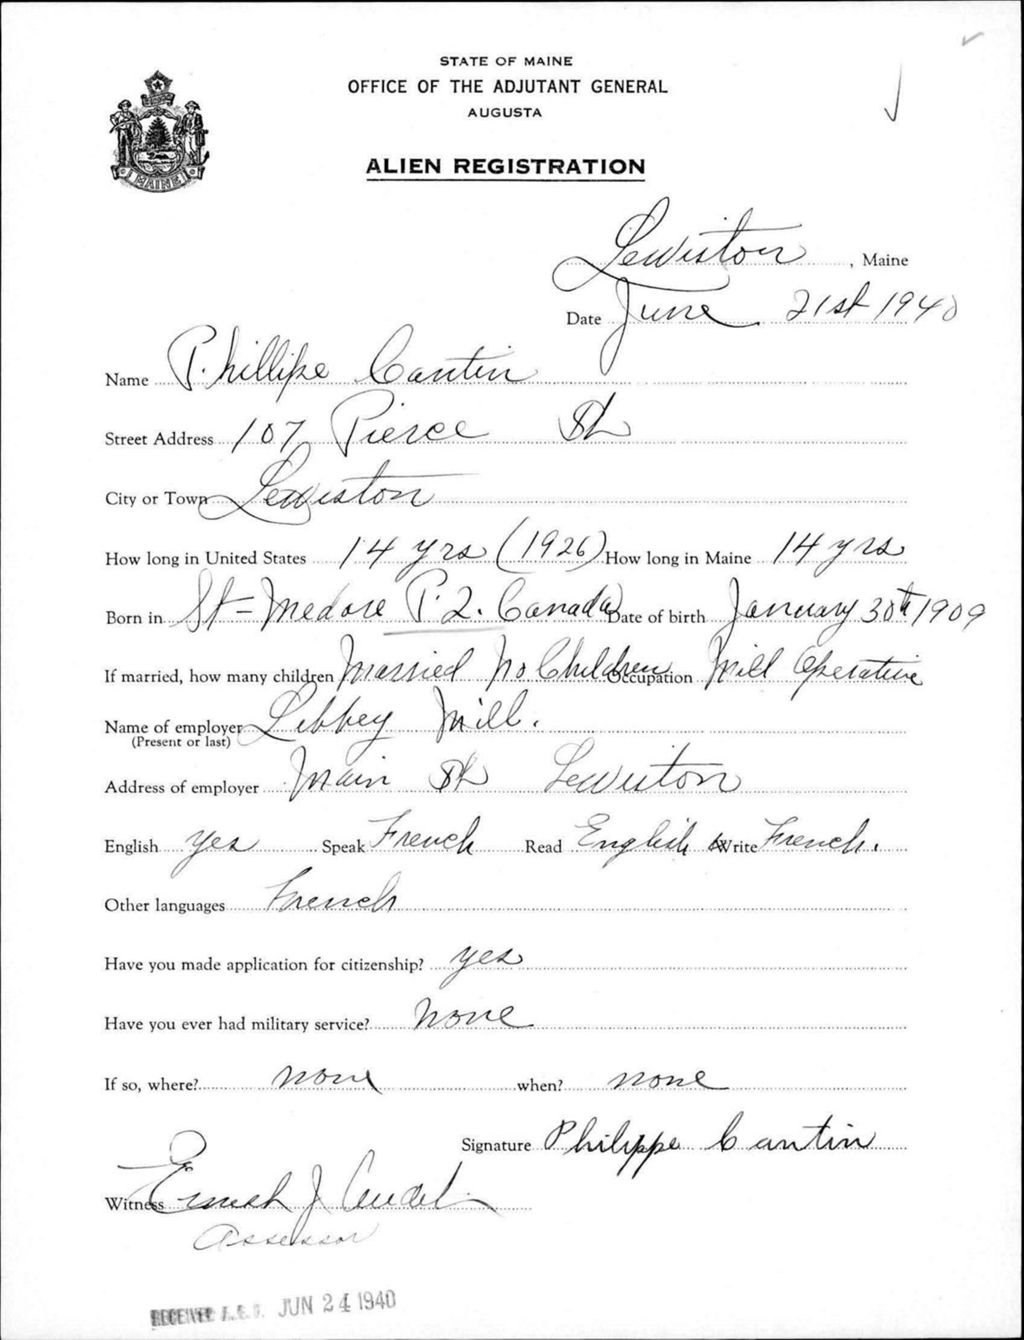 STATE OF MAINE
OFFICE OF THE ADJUTANT GENERAL
AUGUSTA
ALIEN REGISTRATION
MAINE
Lewiston, Maine
Date June 21st 1940
Name Phillipe Cantin
Street Address 107 Pierce St
City or Town Lewiston
How long in United States 14 yrs (1926) How long in Maine 14 yrs
Born in St-Medore P.Q. Canada Date of birth January 30th 1909
If married, how many children Married No Children Occupation Mill Operative
Name of employer Libbey Mill.
(Present or last)
Address of employer Main St Lewiston
English yes Speak French Read English & Write French.
Other languages French
Have you made application for citizenship? yes
Have you ever had military service? none
If so, where? none when? none
Signature Philippe Cantin
Witness Ernest J.
Assessor
RECEIVED A.G.O. JUN 24 1940